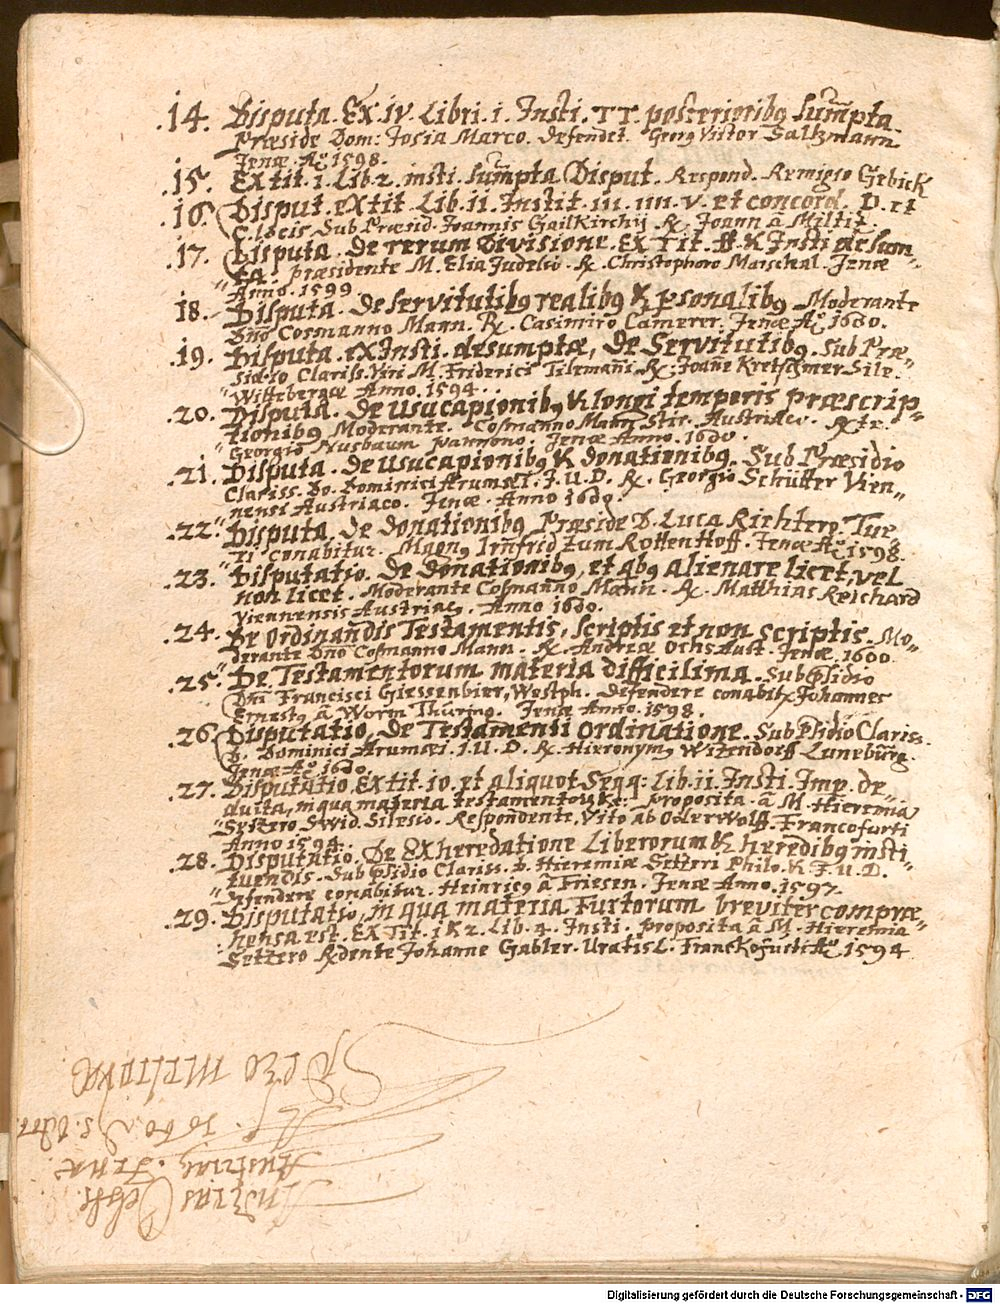 .14. Disputa. Ex iv Libri. i. Insti. TT. posterioribꝰ sumpta.
Præside Dom: Josia Marco. Defendet. Georg Victor Saltzmann
Jenæ. Aº. 1598.
.15. EX tit. i. Lib 2. insti. sumpta Disput. Respond. Remigio Gebick
.16. Disput. eX tit. Lib. ii. Instit. iii. iiii. v. et concord. D. et
C. locis Sub Præsid. Joannis Gailkirchij R. Joann â Miltit.
.17. Disputa. De rerum Divisione. EX Tit. ff. & Insti de sum-
ta præsidente M. Elia Judelio. R. Christophoro Marschal. Jenæ
Anno. 1599
18. Disputa. de servitutibꝰ realibꝰ & psonalibꝰ Moderante
Dño Cosmanno Mann. R. Casimiro Camerer. Jenæ Aº. 1600.
.19. Disputa. eX Insti. desumptæ, De Servitutibꝰ. Sub Præ-
sidio Clariss. Viri M. Friderici Tilemañi. R. Joañe Kretschmer Sile.
Wittebergæ Anno. 1594.
.20. Disputa. De usucapionibꝰ & longi temporis Præscrip-
tionibꝰ Moderante. Cosmanno Mann Stir. Austriac.
Georgio Nusbaum pannono. Jenæ Anno. 1600.
.21. Disputa. de usucapionibꝰ & donationibꝰ. Sub Præsidio
Clariss. Do. Dominici Arumæi. J.U.D. R. Georgio Schütter Vien-
nensi Austriaco. Jenæ. Anno 1600.
.22. Disputa. de donationibꝰ Præside D. Luca Richtero. Tue-
ri conabitur. Magnꝰ Irnfrid zum Rottenhoff. Jenæ Aº. 1598.
.23. Disputatio. De donationibꝰ, et qbꝰ alienare licet, vel
non licet. Moderante Cosmanno Mann. R. Matthias Reichard
Viennensis Austriacꝰ. Anno 1600.
.24. De ordinandis Testamentis, scriptis et non scriptis. Mo-
derante Dño Cosmanno Mann. R. Andreæ Ochs Aust. Jenæ. 1600.
.25. De Testamentorum materia difficilima. Sub psidio
Dñi Francisci Giessenbier, Westph. Defendere conabit. Johannes
Ernestꝰ â Worm Thüring. Jenæ Anno. 1598.
.26. Disputatio, de Testamenti ordinatione. Sub psidio Clariss.
D. Dominici Arumæi. J.U.D. R. Hieronymꝰ Witzendorff Luneburg.
Jenæ Aº 1600.
.27. Disputatio, EX tit. 10. et aliquot Seqq: Lib. ii. Insti. Imp. de-
ducta, in qua materia testamentor. &c. proposita. â M. Hieremia
Setzero Swid. Silesio. Respondente, Vito ab Oderwolff. Francofurti
Anno 1594.
28. Disputatio. De EXheredatione Liberorum & heredibꝰ insti-
tuendis. Sub psidio Clariss. D. Hieremiæ Setzeri Philo. & J.U.D.
Defendere conabitur. Heinricꝰ â Friesen. Jenæ Anno. 1597.
.29. Disputatio, in qua materia Furtorum breviter compræ-
hensa est. EX Tit. i & 2. Lib. 4. Insti. proposita â M. Hieremia
Setzero Rdente Johanne Gabler. Uratisl. Franckofurti Aº. 1594
Andreas Ochss.
Austriacꝰ. Jenæ
Aº. 1600
Spero meliora
Digitalisierung gefördert durch die Deutsche Forschungsgemeinschaft - DFG